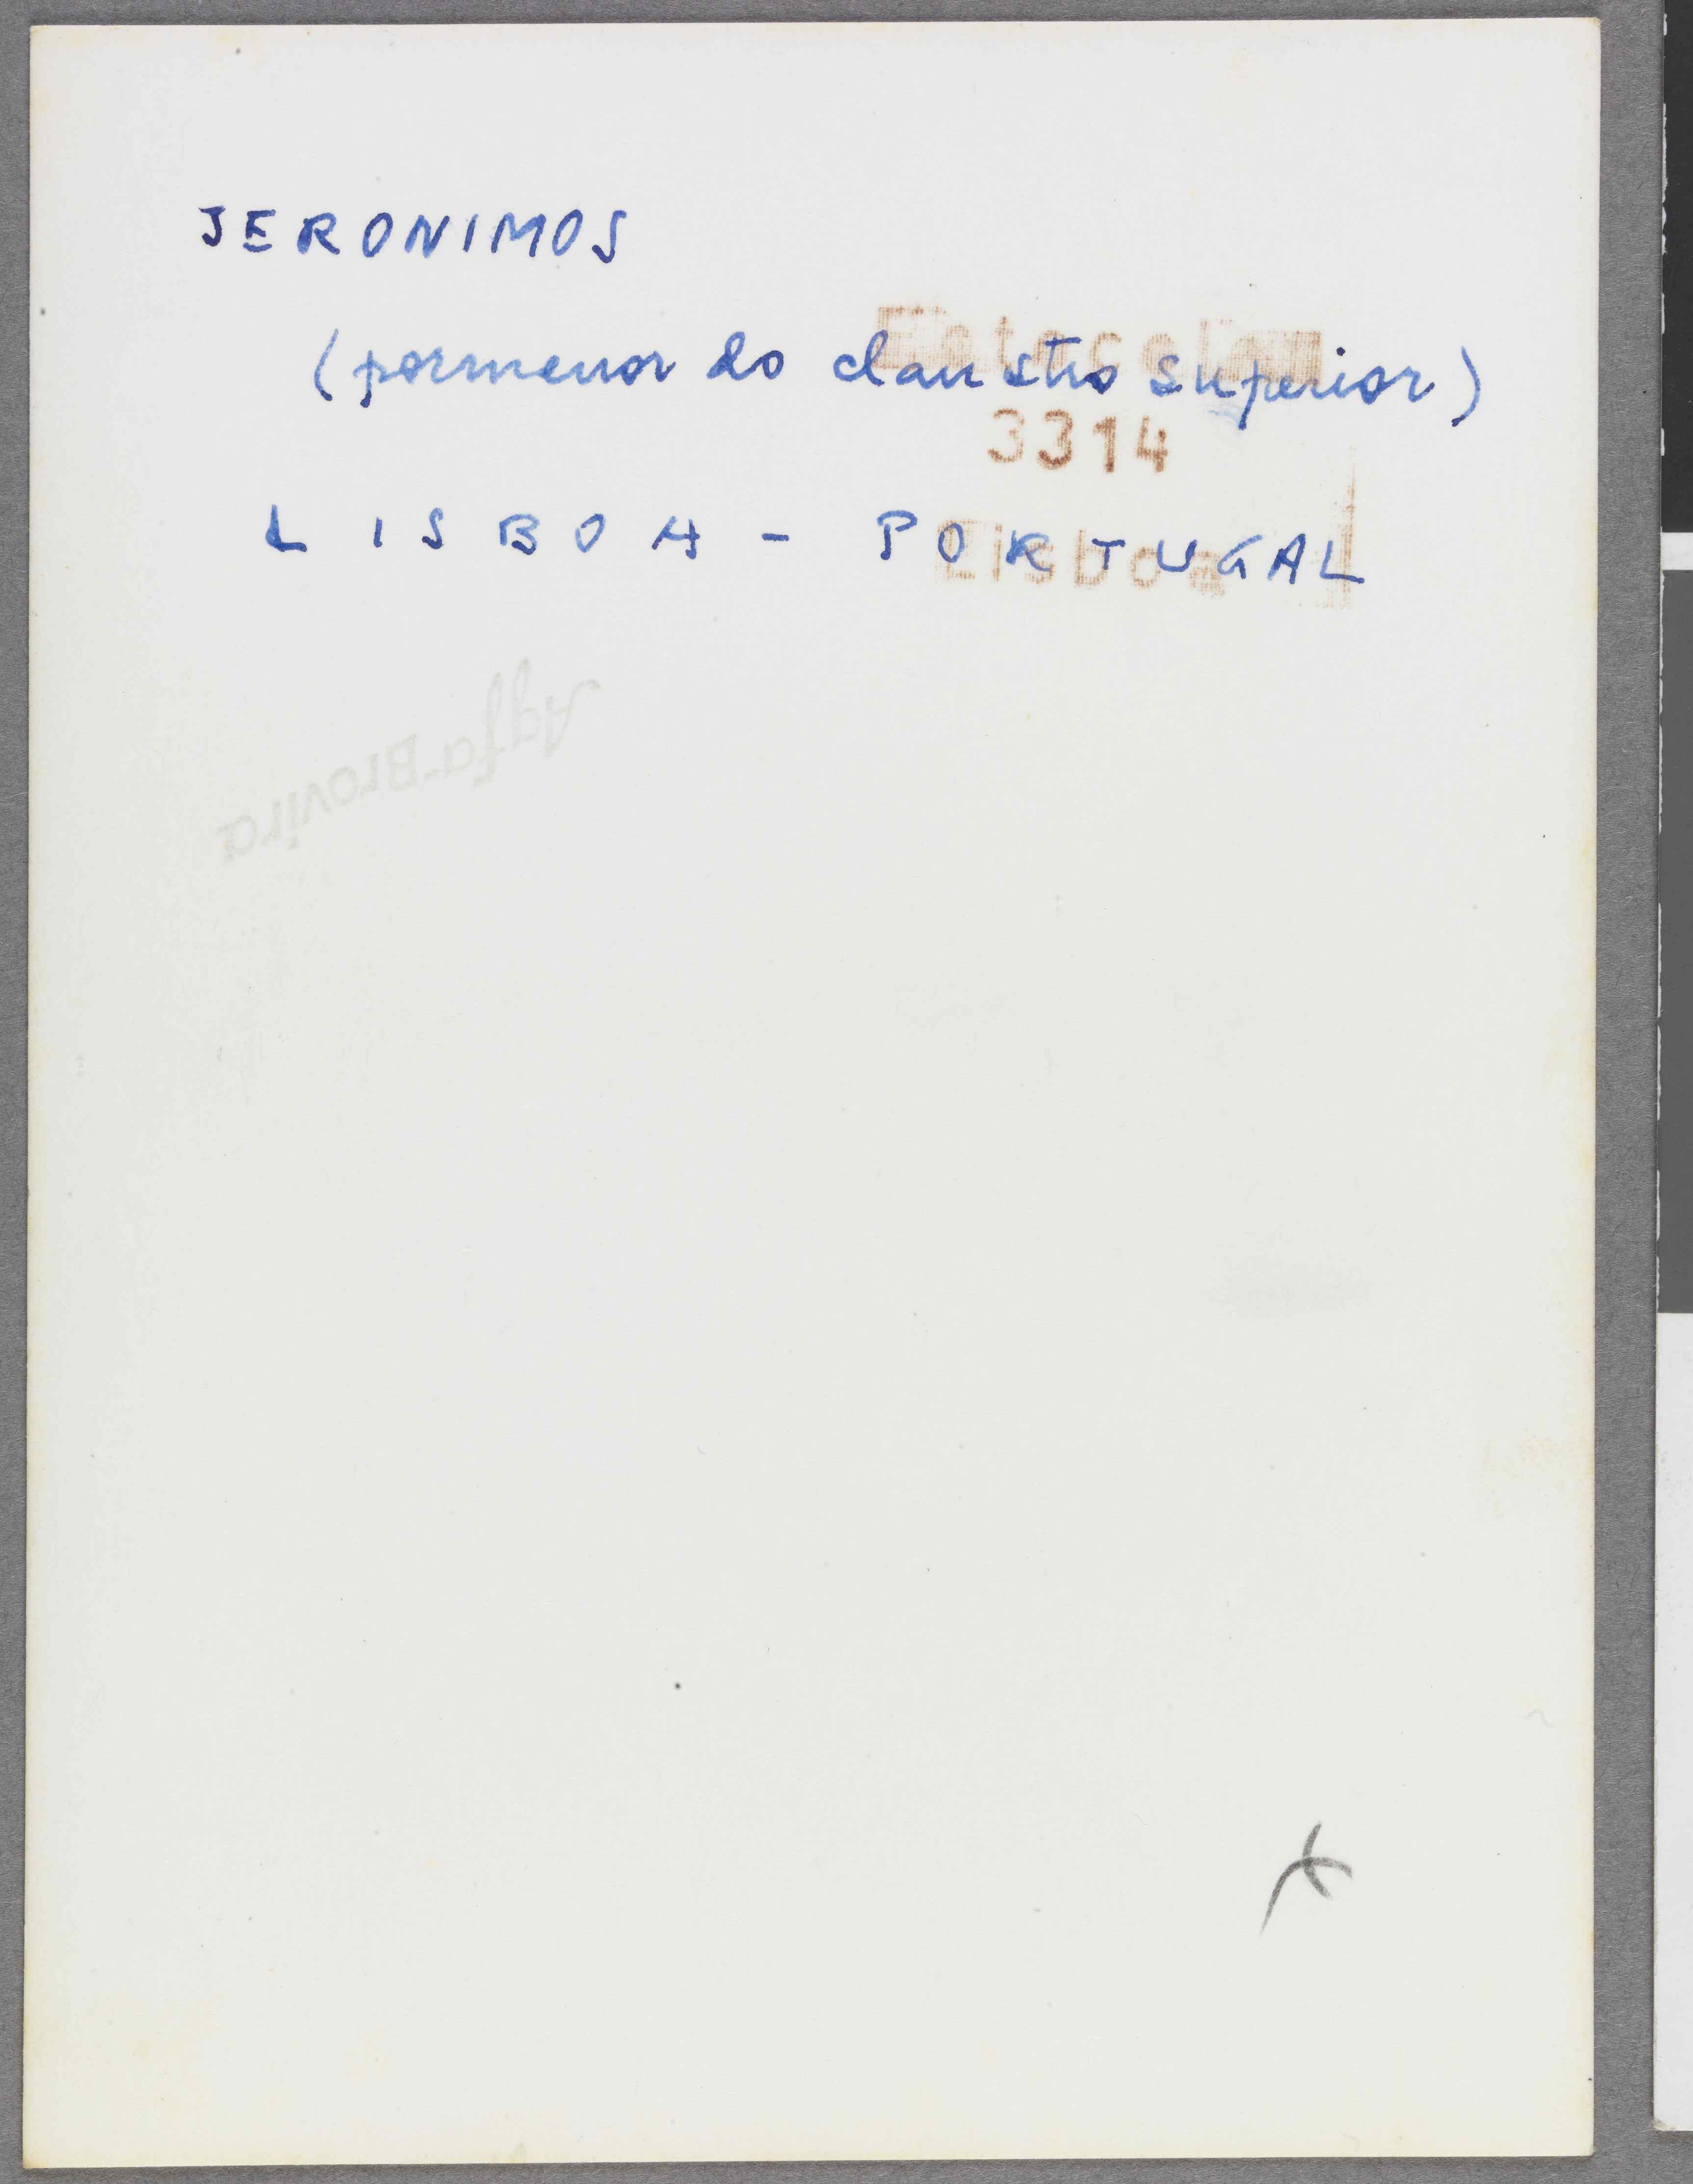 JERONIMOS
(pormenor do claustro superior)
Fotocolor
3314
LISBOA - PORTUGAL
Lisboa
Agfa-Brovira